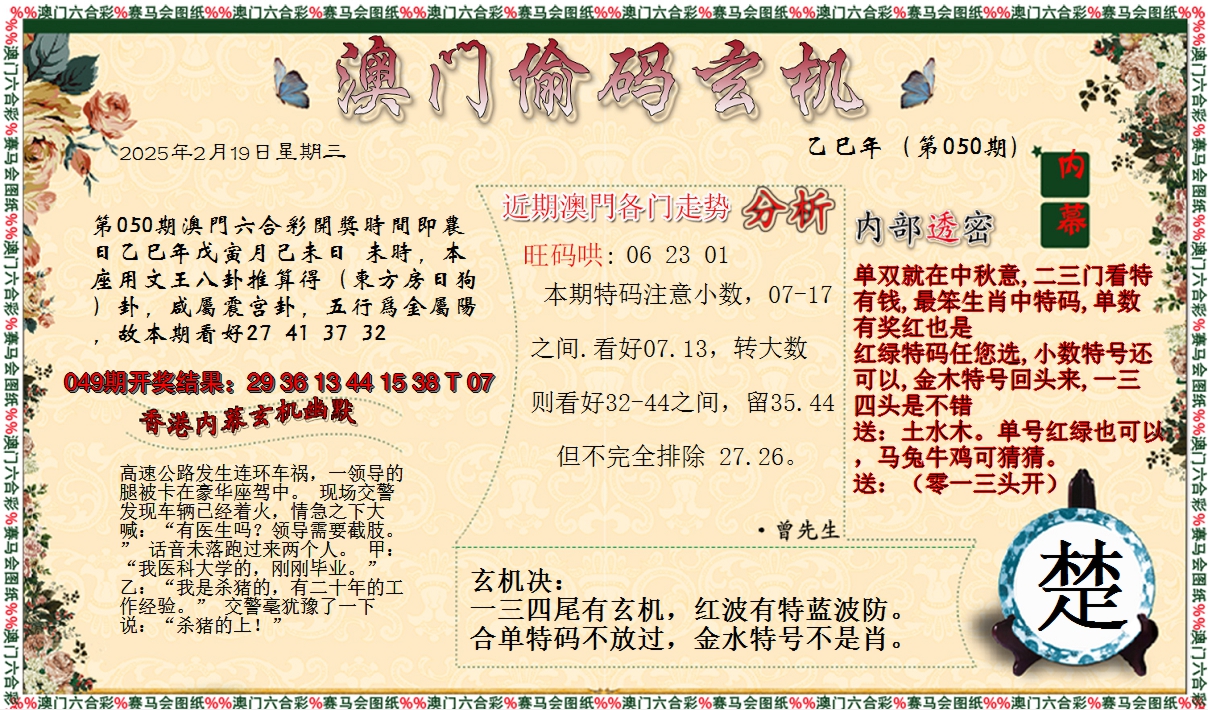 %%澳门六合彩%赛马会图纸%%澳门六合彩%赛马会图纸%%澳门六合彩%赛马会图纸%%澳门六合彩%赛马会图纸%%澳门六合彩%赛马会图纸%%澳门六合彩%赛马会图纸%%
澳门偷码玄机
2025年2月19日星期三
乙巳年（第050期）
内
幕
第050期澳門六合彩開獎時間即農
日乙巳年戊寅月己未日 未時，本
座用文王八卦推算得（東方房日狗
）卦，咸屬震宮卦，五行爲金屬陽
，故本期看好27 41 37 32
049期开奖结果：29 36 13 44 15 38 T 07
香港内幕玄机幽默
高速公路发生连环车祸，一领导的
腿被卡在豪华座驾中。 现场交警
发现车辆已经着火，情急之下大
喊：“有医生吗？领导需要截肢。
” 话音未落跑过来两个人。 甲：
“我医科大学的，刚刚毕业。”
乙：“我是杀猪的，有二十年的工
作经验。” 交警毫犹豫了一下
说：“杀猪的上！”
近期澳門各门走势 分析
旺码哄: 06 23 01
本期特码注意小数，07-17
之间.看好07.13，转大数
则看好32-44之间，留35.44
但不完全排除 27.26。
·曾先生
内部透密
单双就在中秋意,二三门看特
有钱,最笨生肖中特码,单数
有奖红也是
红绿特码任您选,小数特号还
可以,金木特号回头来,一三
四头是不错
送：土水木。单号红绿也可以
，马兔牛鸡可猜猜。
送：（零一三头开）
玄机决：
一三四尾有玄机，红波有特蓝波防。
合单特码不放过，金水特号不是肖。
楚
%%澳门六合彩%赛马会图纸%%澳门六合彩%赛马会图纸%%澳门六合彩%赛马会图纸%%澳门六合彩%赛马会图纸%%澳门六合彩%赛马会图纸%%澳门六合彩%赛马会图纸%%